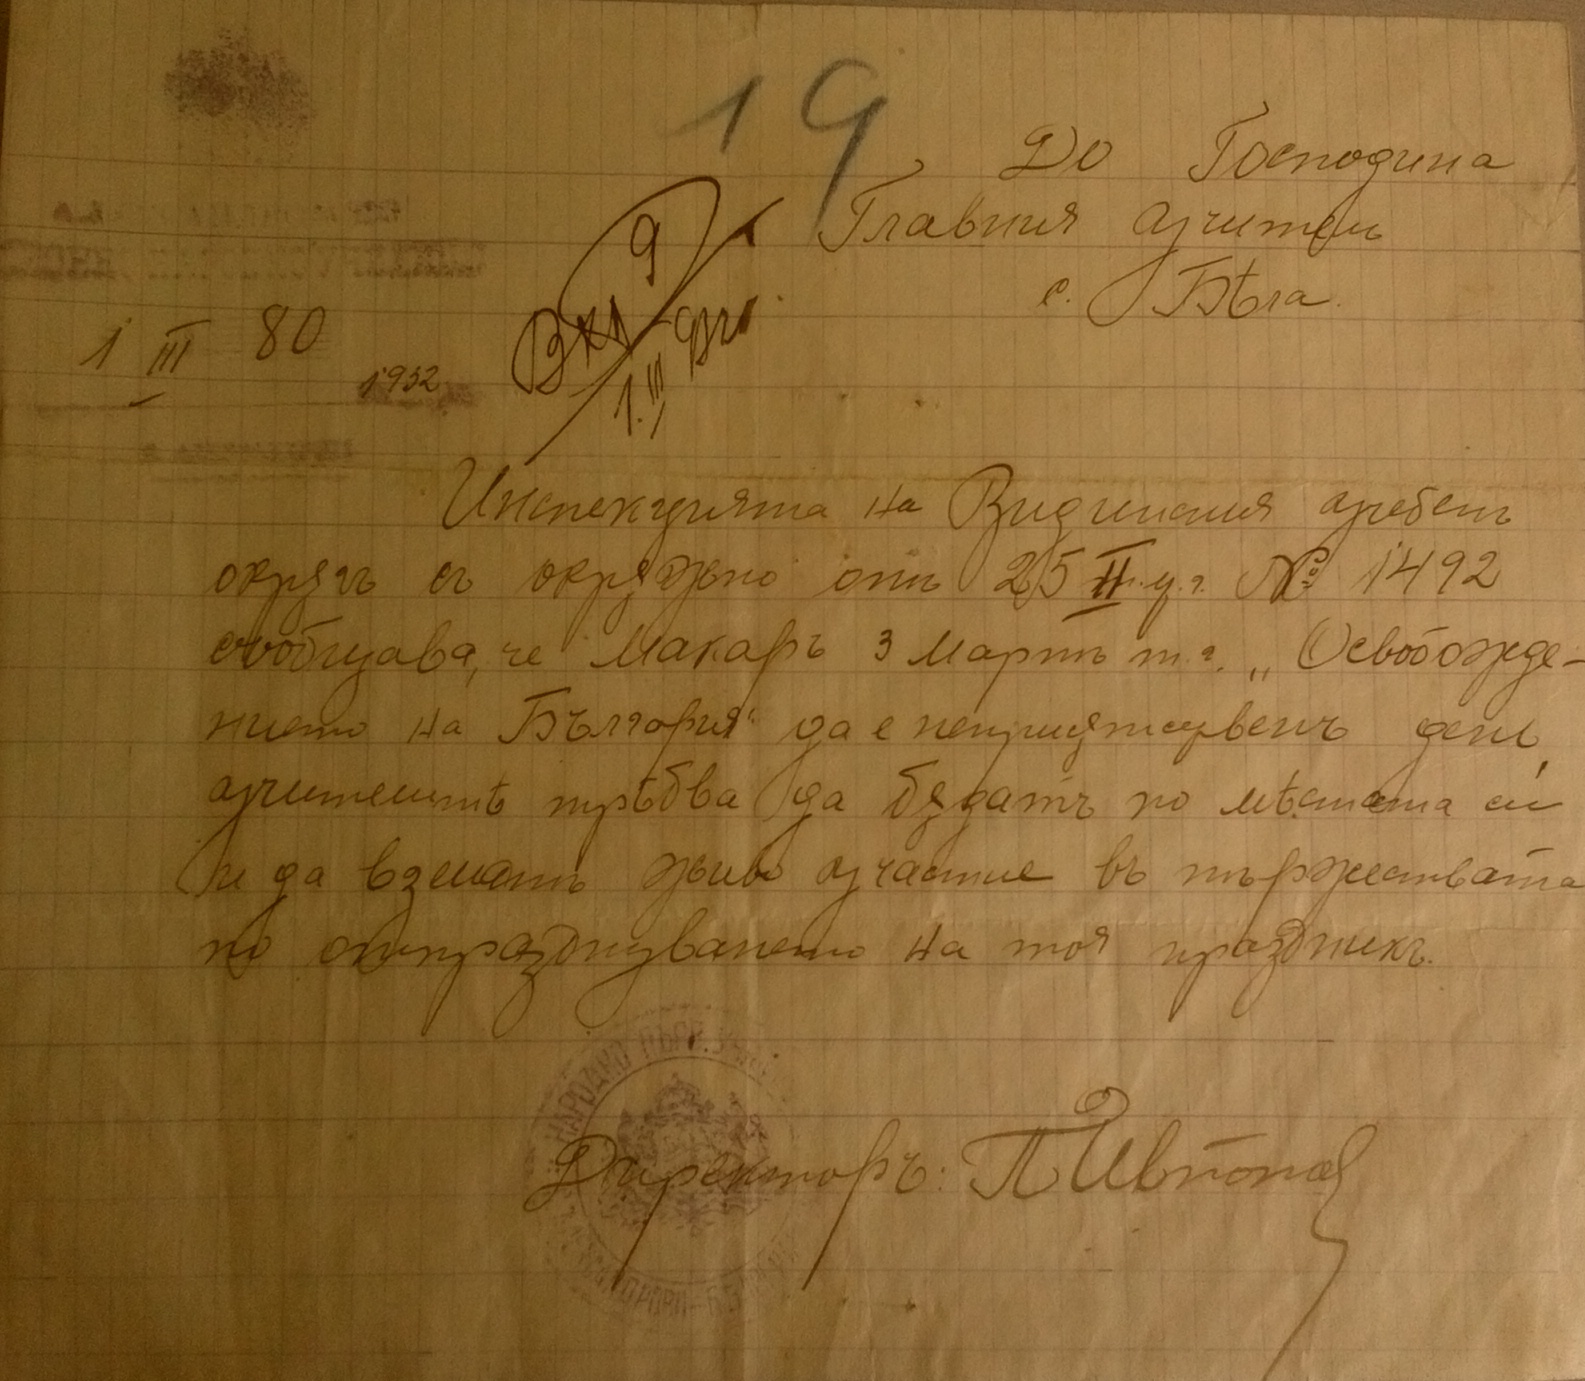 19
До Господина
Главния Учитель
с. Бѣла.
Вх. 9
1.III
1 III 80
1932
Инспекцията на Видинския учебенъ
окрѫгъ съ окрѫжно отъ 25 II т.г. № 1492
съобщава, че Макаръ 3 Мартъ т.г. „Освобожде-
нието на България“ да е неприсѫтственъ день,
учителитѣ трѣбва да бѫдатъ по мѣстата си
и да взематъ живо участие въ тържествата
по отпразднуването на тоя праздникъ.
НАРОДНО ПЪРВ. УЧ
Директоръ: